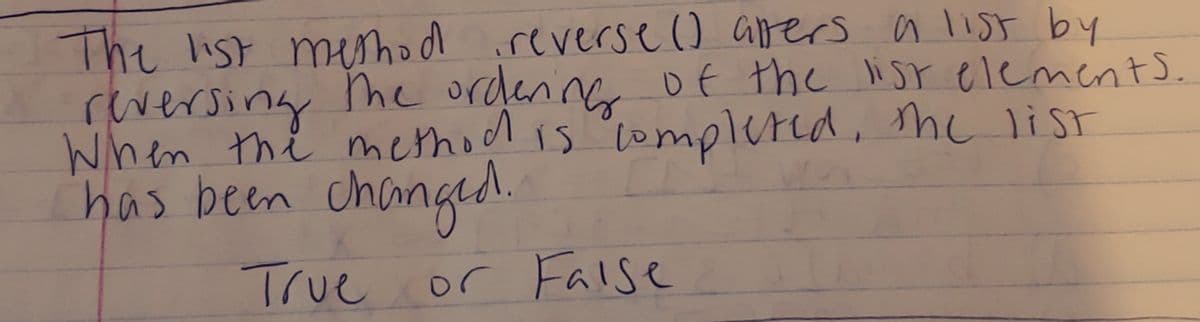 The list method .reverse() alters a list by
reversing the ordering of the list elements.
When the method is completed, the list
has been changed.
True or False